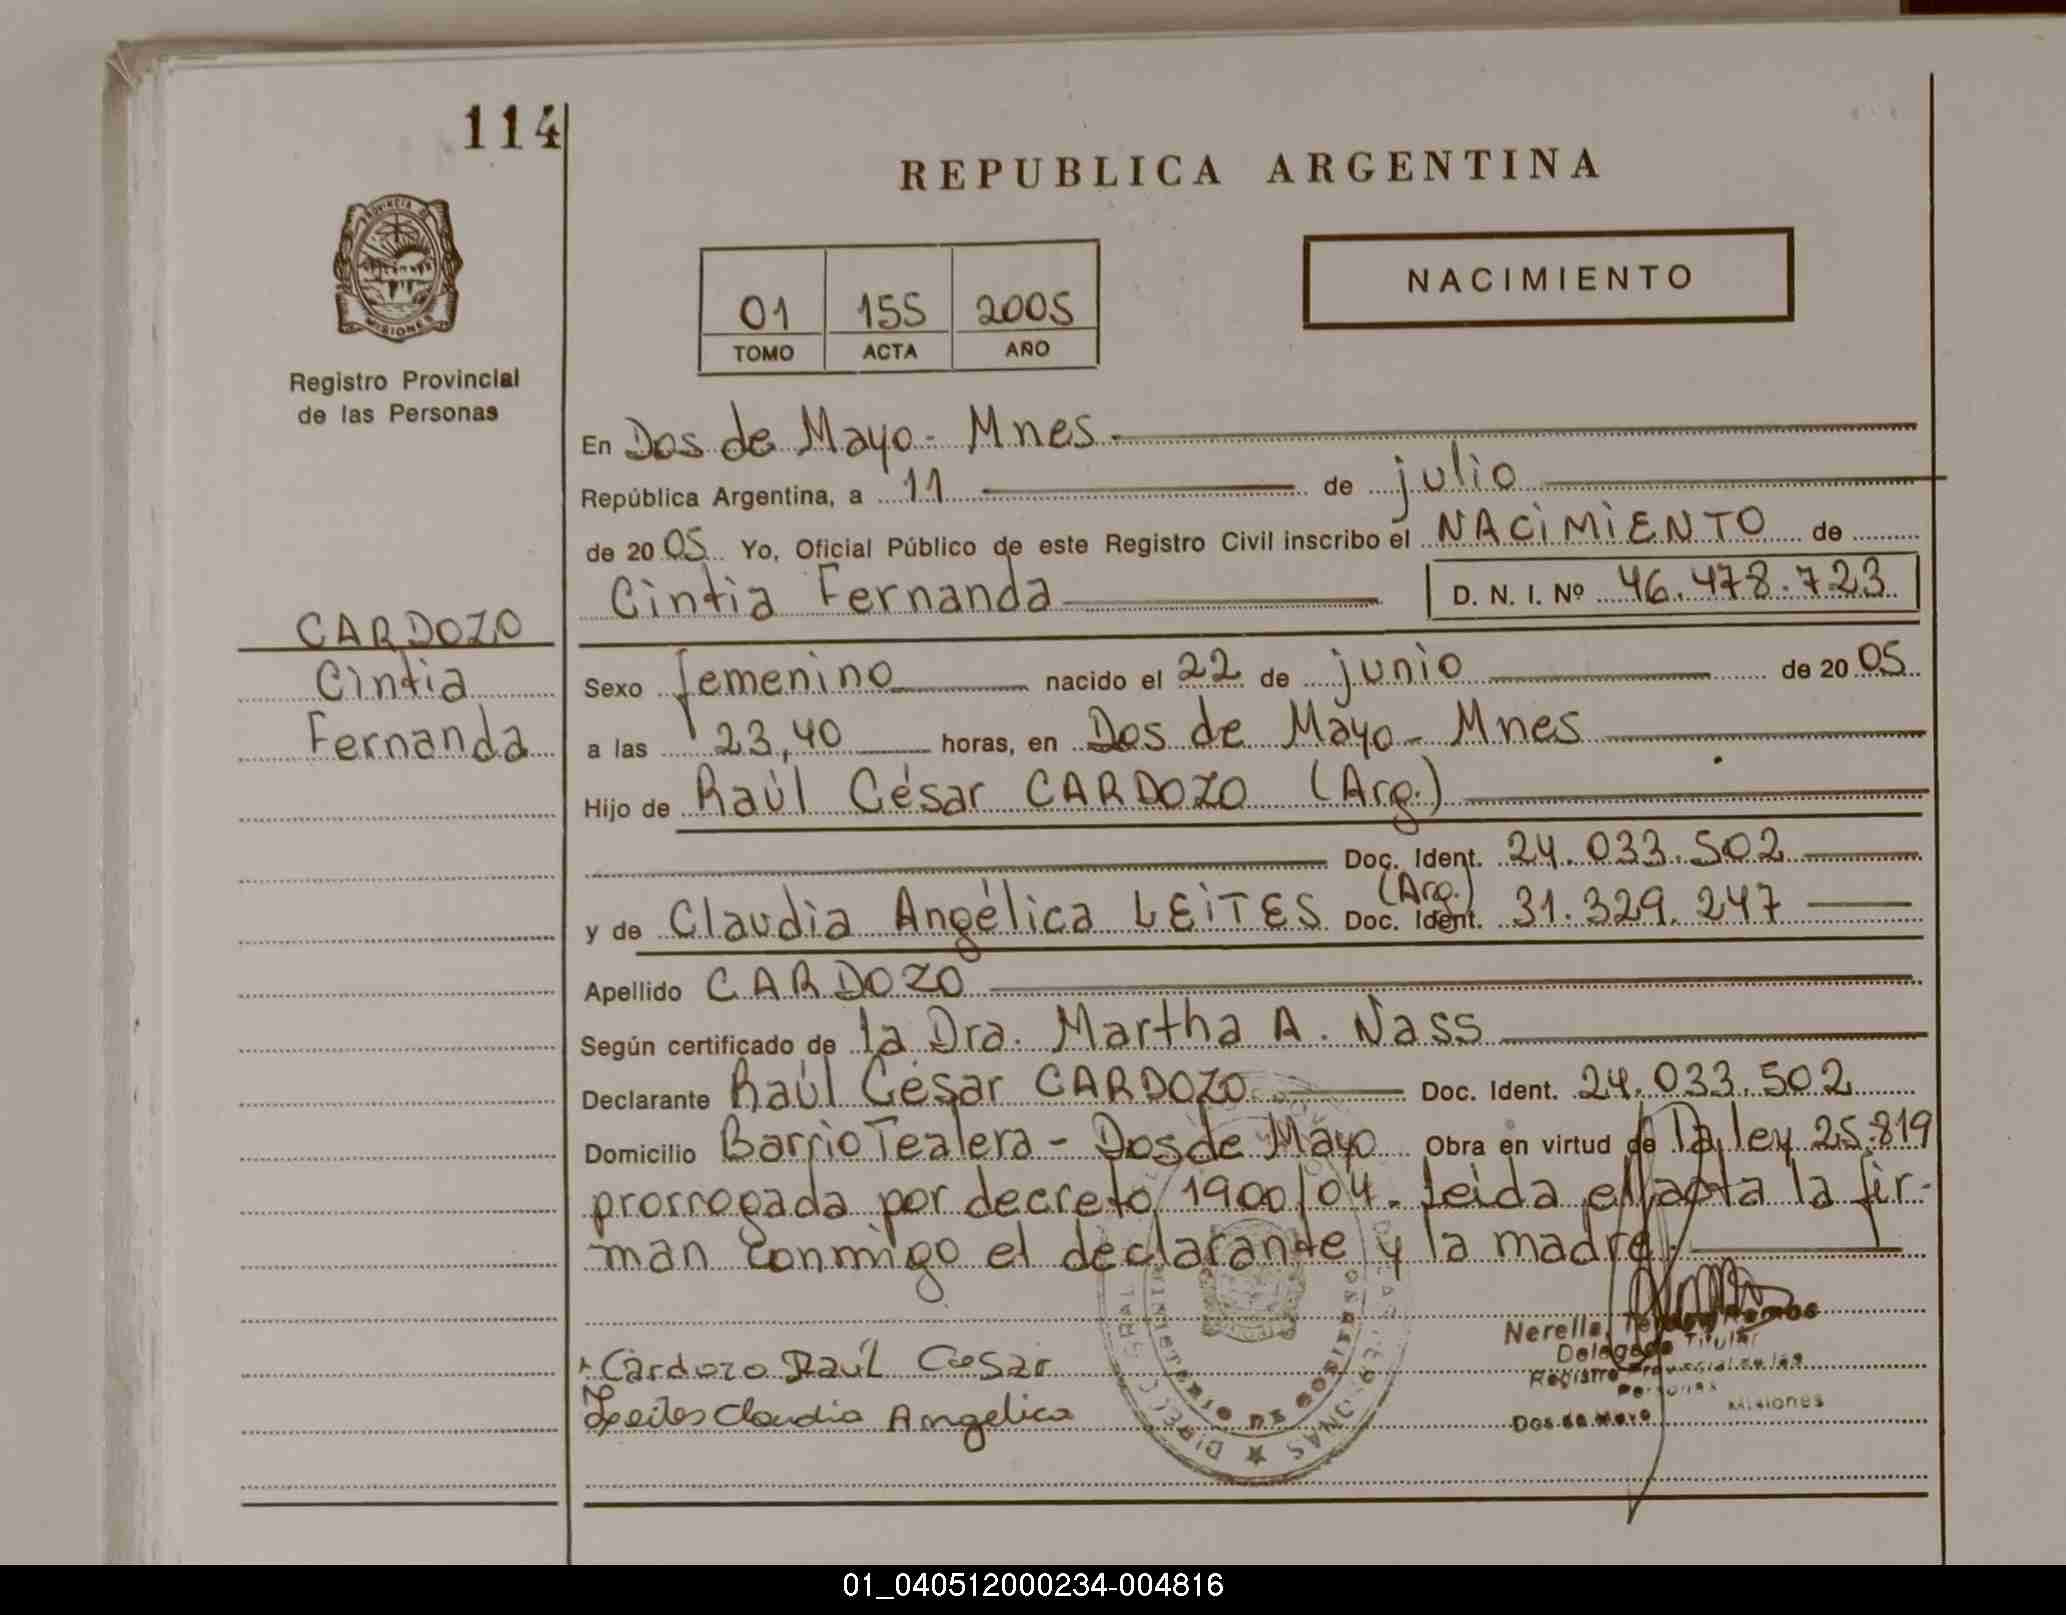 114
REPUBLICA ARGENTINA
PROVINCIA DE
MISIONES
NACIMIENTO
01 155 2005
TOMO ACTA AÑO
Registro Provincial
de las Personas
En Dos de Mayo - Mnes.
República Argentina, a 11 de julio
de 20 05 Yo, Oficial Público de este Registro Civil inscribo el NACIMIENTO de
Cintia Fernanda D. N. I. Nº 46.478.723
CARDOZO
Cintia
Fernanda
Sexo femenino nacido el 22 de junio de 20 05
a las 23,40 horas, en Dos de Mayo - Mnes
Hijo de Raúl César CARDOZO (Arg.)
Doc. Ident. 24.033.502
y de Claudia Angélica LEITES (Arg.) Doc. Ident. 31.329.247
Apellido CARDOZO
Según certificado de la Dra. Martha A. Nass
Declarante Raúl César CARDOZO Doc. Ident. 24.033.502
Domicilio Barrio Tealera - Dos de Mayo Obra en virtud de la ley 25.819
prorrogada por decreto 1900/04. Leida el acta la fir-
man conmigo el declarante y la madre.
Cardozo Raúl Cesar
Leites Claudia Angelica
Nerella
Delegada Titular
Registro Provincial de las
Personas
Dos de Mayo Misiones
01_040512000234-004816